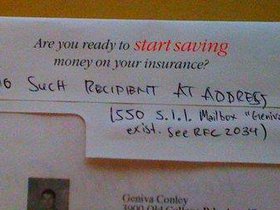 Are you ready to start saving
money on your insurance?
NO SUCH RECIPIENT AT ADDRESS
(550 5.1.1. Mailbox "Geniva
exist. see RFC 2034)
Geniva Conley
3900 Old